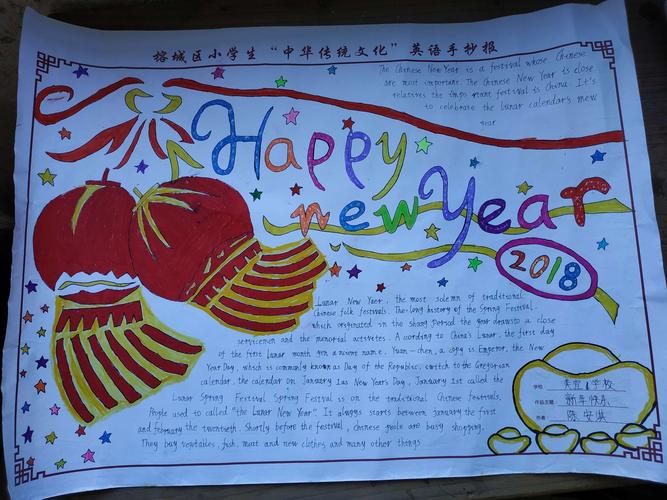 榕城区小学生“中华传统文化”英语手抄报
The Chinese New Year is a festival whose Chinese
are most important. The Chinese New Year is close
relatives the impo rtant festival is China. It's
to celebrate the lunar calendar's new
year
Happy
new Year
2018
Lunar New Year, the most solemn of traditional
Chinese folk festivals. The long history of the Spring Festival.
which originated in the Shang Period the year drawsto a close
servicemen and the memorial activites. A wording to China's Lunar, the first day
of the first lunar month yin ancient name, Yuan-chen, a copy is Emperor, the New
Year Day, which is commonly known as Day of the Republic, switch to the Gregorian
calendar, the calendar on January 1as New Year's Day, January 1st called the
Lunar Spring Festival Spring Festival is on the traditional Chinese festivals.
People used to called "the Lunar New Year". It always starts between january the first
and february the twentieth. Shortly before the festival, chinese peole are busy shopping.
They buy vegetables, fish, meat and new clothes and many other things
学校: 学校
作品主题: 新年快乐
作者: 陈安琪